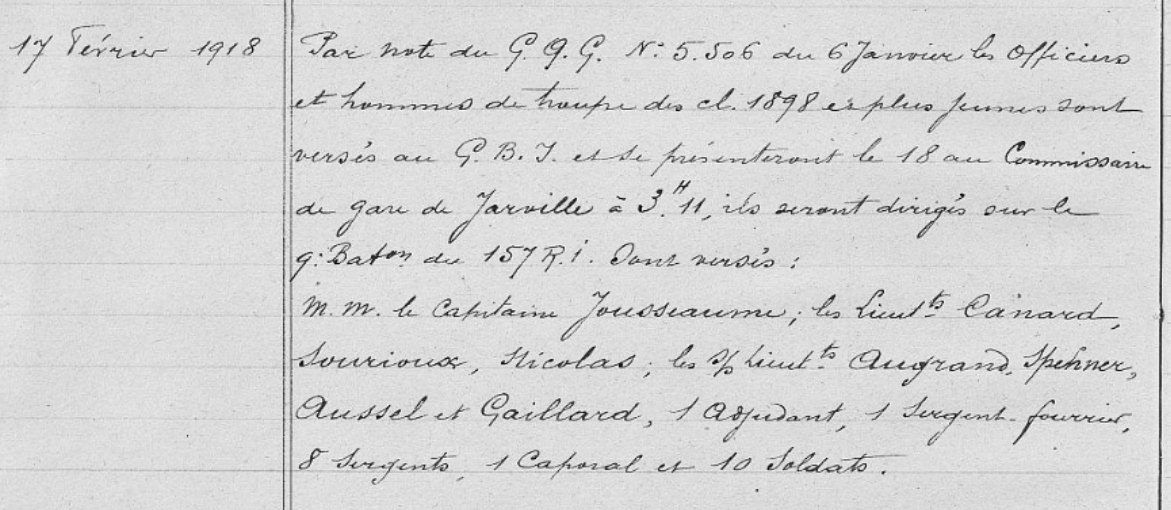 17 Février 1918
Par note du G.Q.G. N° 5.506 du 6 Janvier les officiers
et hommes de troupe des cl. 1898 et plus jeunes sont
versés au G.B.I. et se présenteront le 18 au Commissaire
de gare de Jarville à 3H.11, ils seront dirigés sur le
9e Baton du 157 R.i. Sont versés :
M.M. le Capitaine Jousseaume ; les Lieutts Canard,
Sourioux, Nicolas ; les S/Lieutts Augrand, Spehner,
Aussel et Gaillard, 1 Adjudant, 1 Sergent-fourrier,
8 Sergents, 1 Caporal et 10 Soldats.